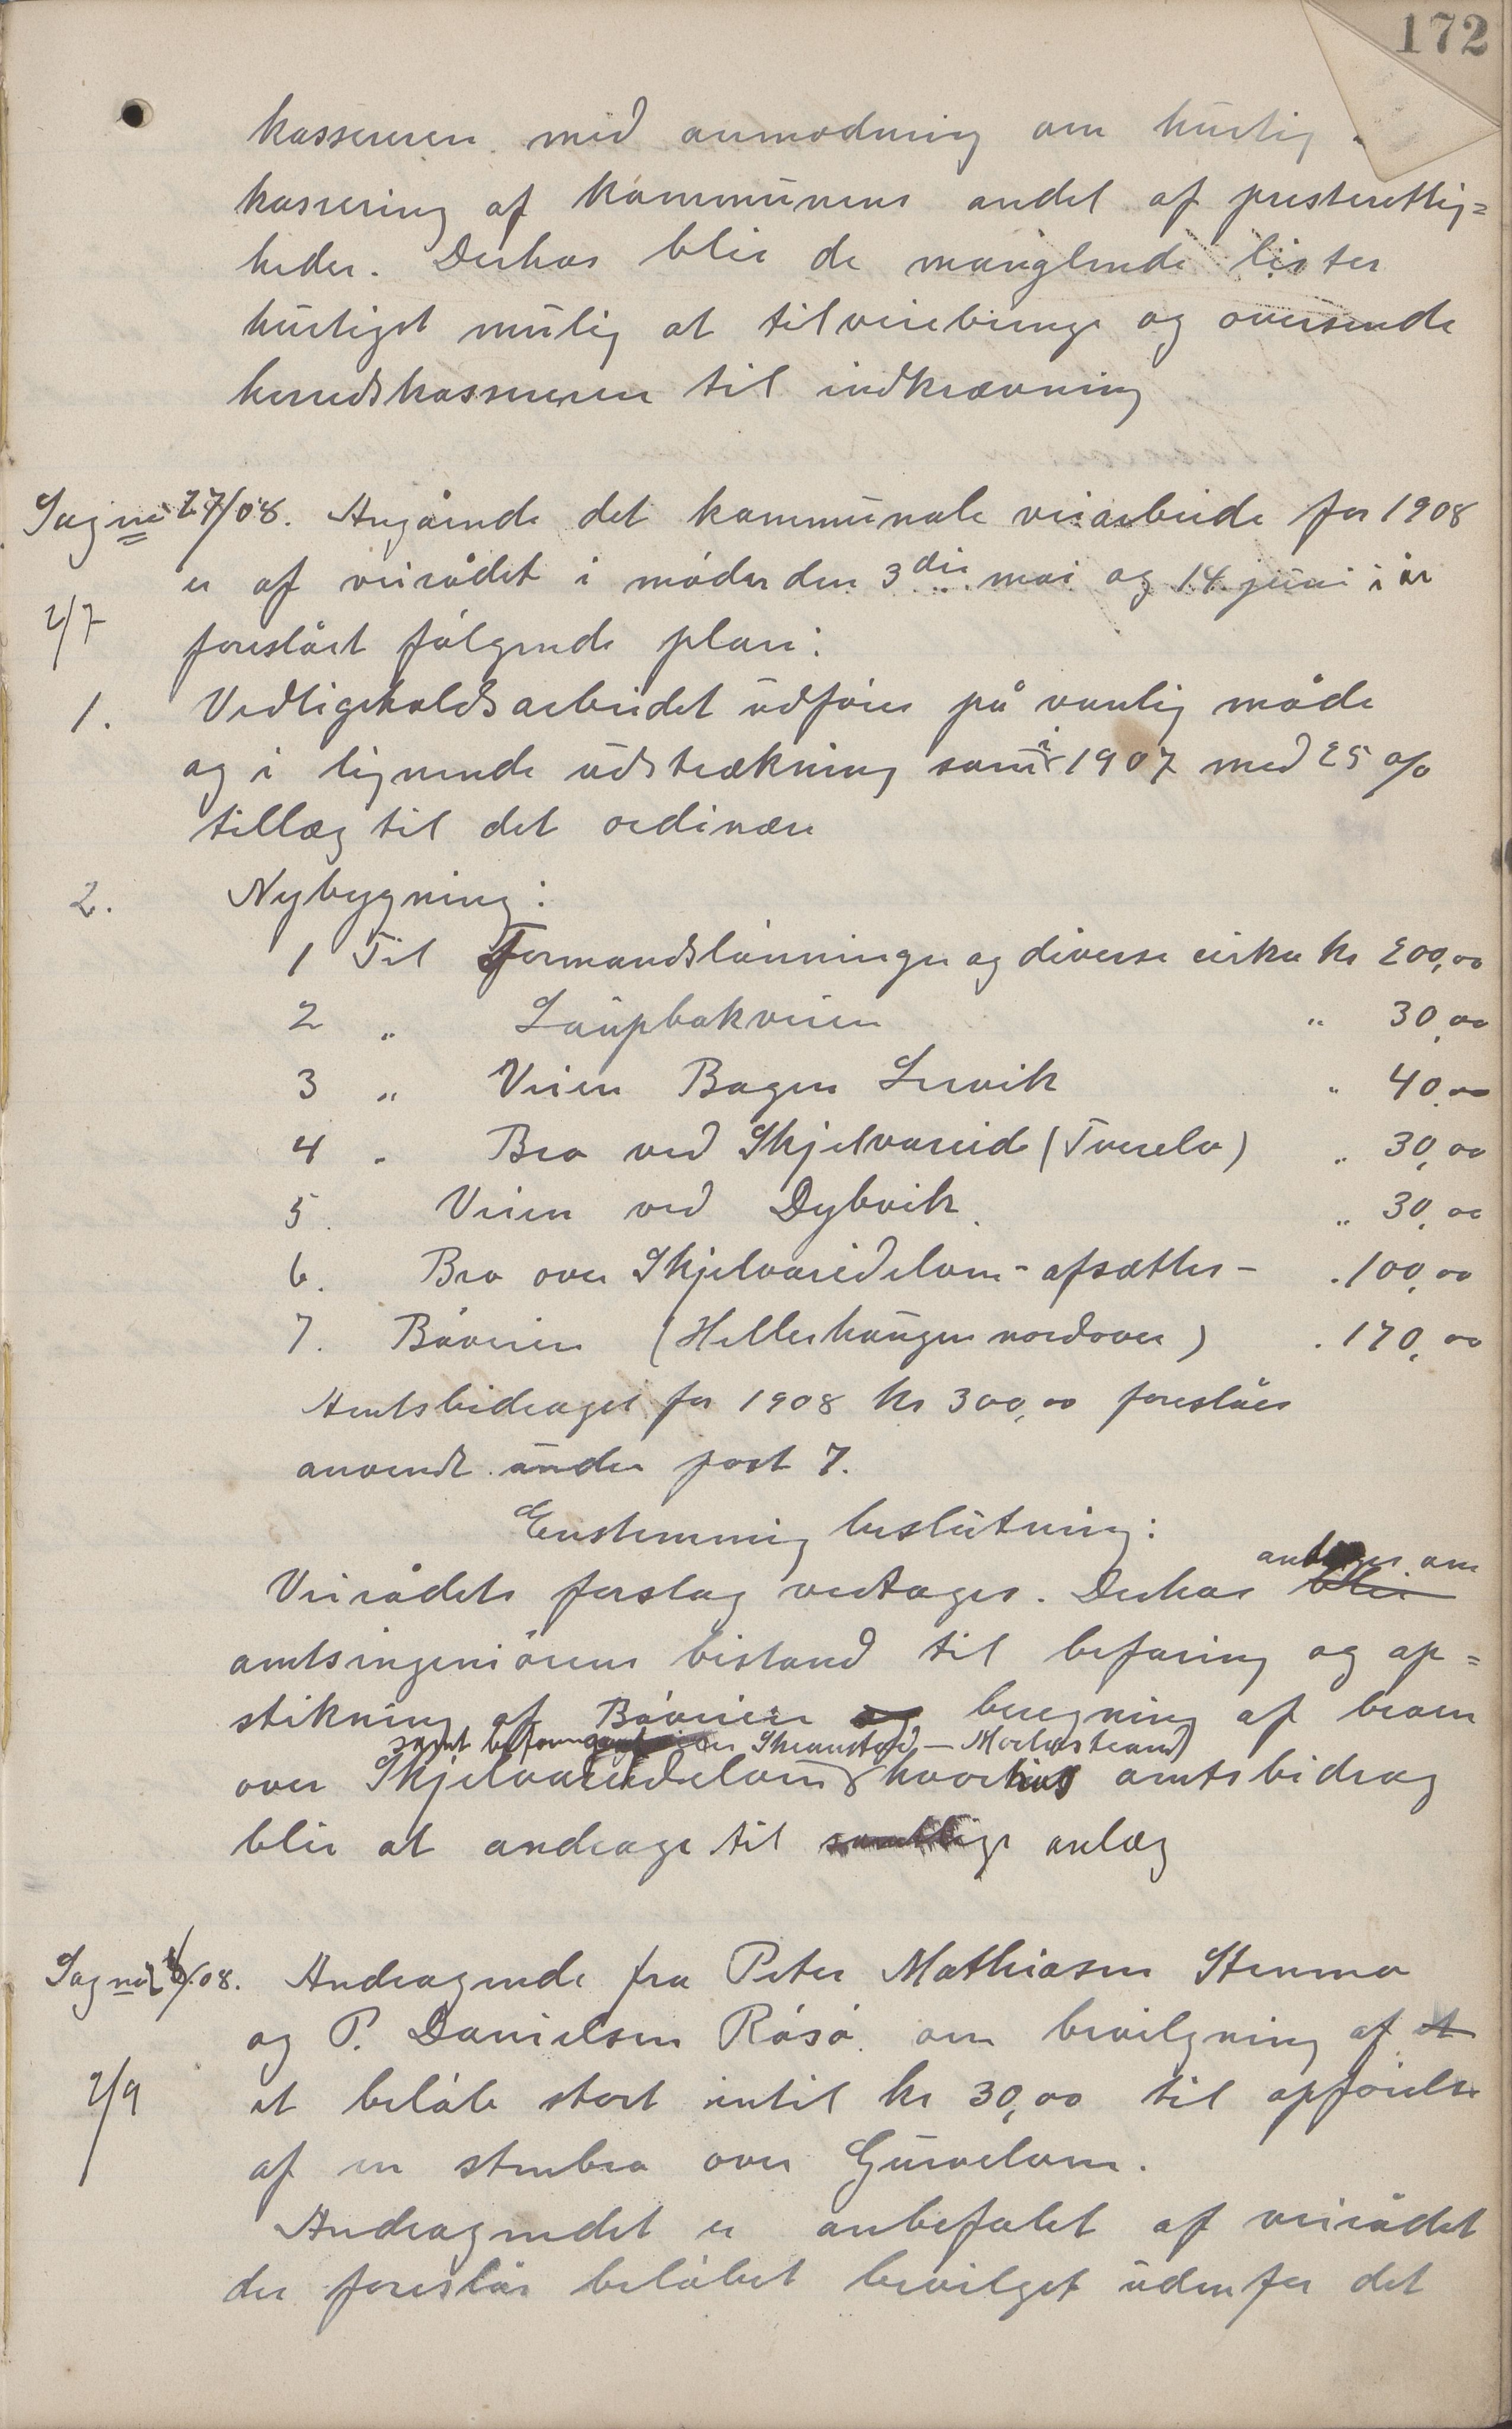 172
kassereren med anmodning om hurtig
kassering af kommunens andel af presterettig=
heder. Derhos blir de manglende lister
hurtigst mulig at tilveiebringe og oversende
herredskassereren til indkrævning
Sag nr 27/08. Angående det kommunale veiarbeide for 1908
er af veirådet i møder den 3die mai og 14 juni i år
2/7
foreslået følgende plan:
1. Vedligeholdsarbeidet udføres på vanlig måde
og i lignende udstrækning som i 1907 med 25 %
tillæg til det ordinære
2. Nybygning:
1 Til Formandslønninger og diverse cirka kr 200,00
2 " Laupbakveien " 30,00
3 " Veien Bogen Lervik " 40,00
4 " Bro ved Skjelvareid (Tverelv) " 30,00
5. Veien ved Dybvik. " 30,00
6. Bro over Skjelvareidelven - afsættes - " 100,00
7. Bøveien (Hellerhaugen nordover) " 170,00
Amtsbidraget for 1908 kr 300,00 foreslåes
anvendt under post 7.
Enstemmig beslutning:
om
Veirådets forslag vedtages. Derhos blir
amtsingeniørens bistand til befaring og op=
stikning af Bøveien og beregning af broen
samt Skranstad - Morkastrand
over Skjelvareidelven hvorhos amtsbidrag
blir at andrage til samtlige anlæg
Sag nr 28/08. Andragende fra Peter Mathiasen Stemmo
og P. Danielsen Røsø om bevilgning af et
2/9
et beløb stort intil kr 30,00 til opførelse
af en stenbro over Gurvelven.
Andragendet er anbefalet af veirådet
der foreslår beløbet bevilget udenfor det